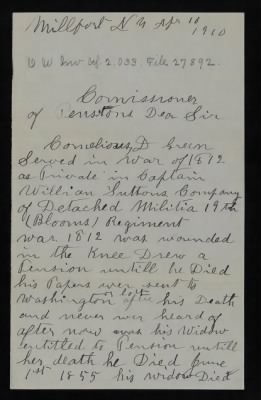 Millport N Y Apr 10
1910
O W Inv Cf. 2.033. File 27892.
Comissioner
of Penstons Dear Sir
Corneliouse D Green
Served in War of 1812
as Private in Captain
William Suttons Company
of Detached Militia 19th
(Blooms) Regiment
war 1812 was wounded
in the Knee Drew a
Pension untill he Died
his Papers wer sent to
Washington after his Death
and never wer heard of
after now was his Widow
entitled to Pension untill
her death he Died June
1st 1855 his widow Died